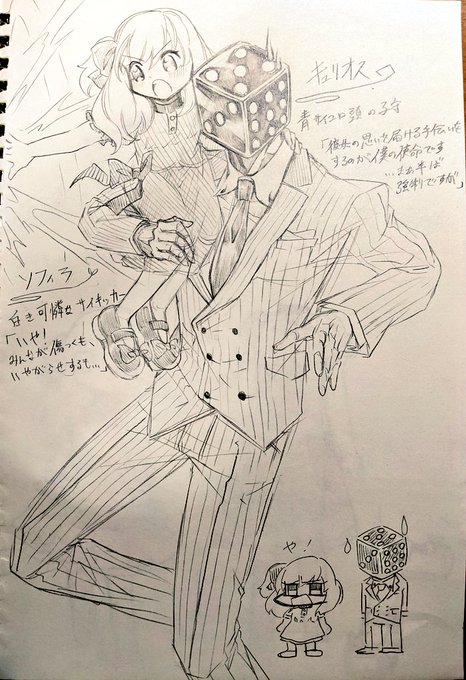 キュリオス
青サイコロ頭の子守
「彼女の思いを届ける手伝いを
するのが僕の使命です
…まぁ半ば
強制ですが」
ソフィラ
白き可憐なサイキッカー
「いや!
みんなが傷つくも、
いやがらせするも…」
や!